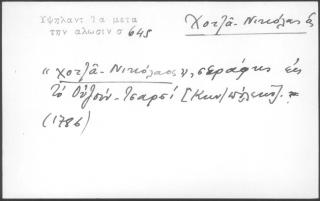 Υψηλαντ Τα μετα
την αλωσιν σ 645
Χοτζᾶ-Νικόλας
"χοτζᾶ-Νικόλαος", σεράφης εἰς
τὸ Οὐζούν-Τσαρσί [Κων/πόλεως].
(1786)